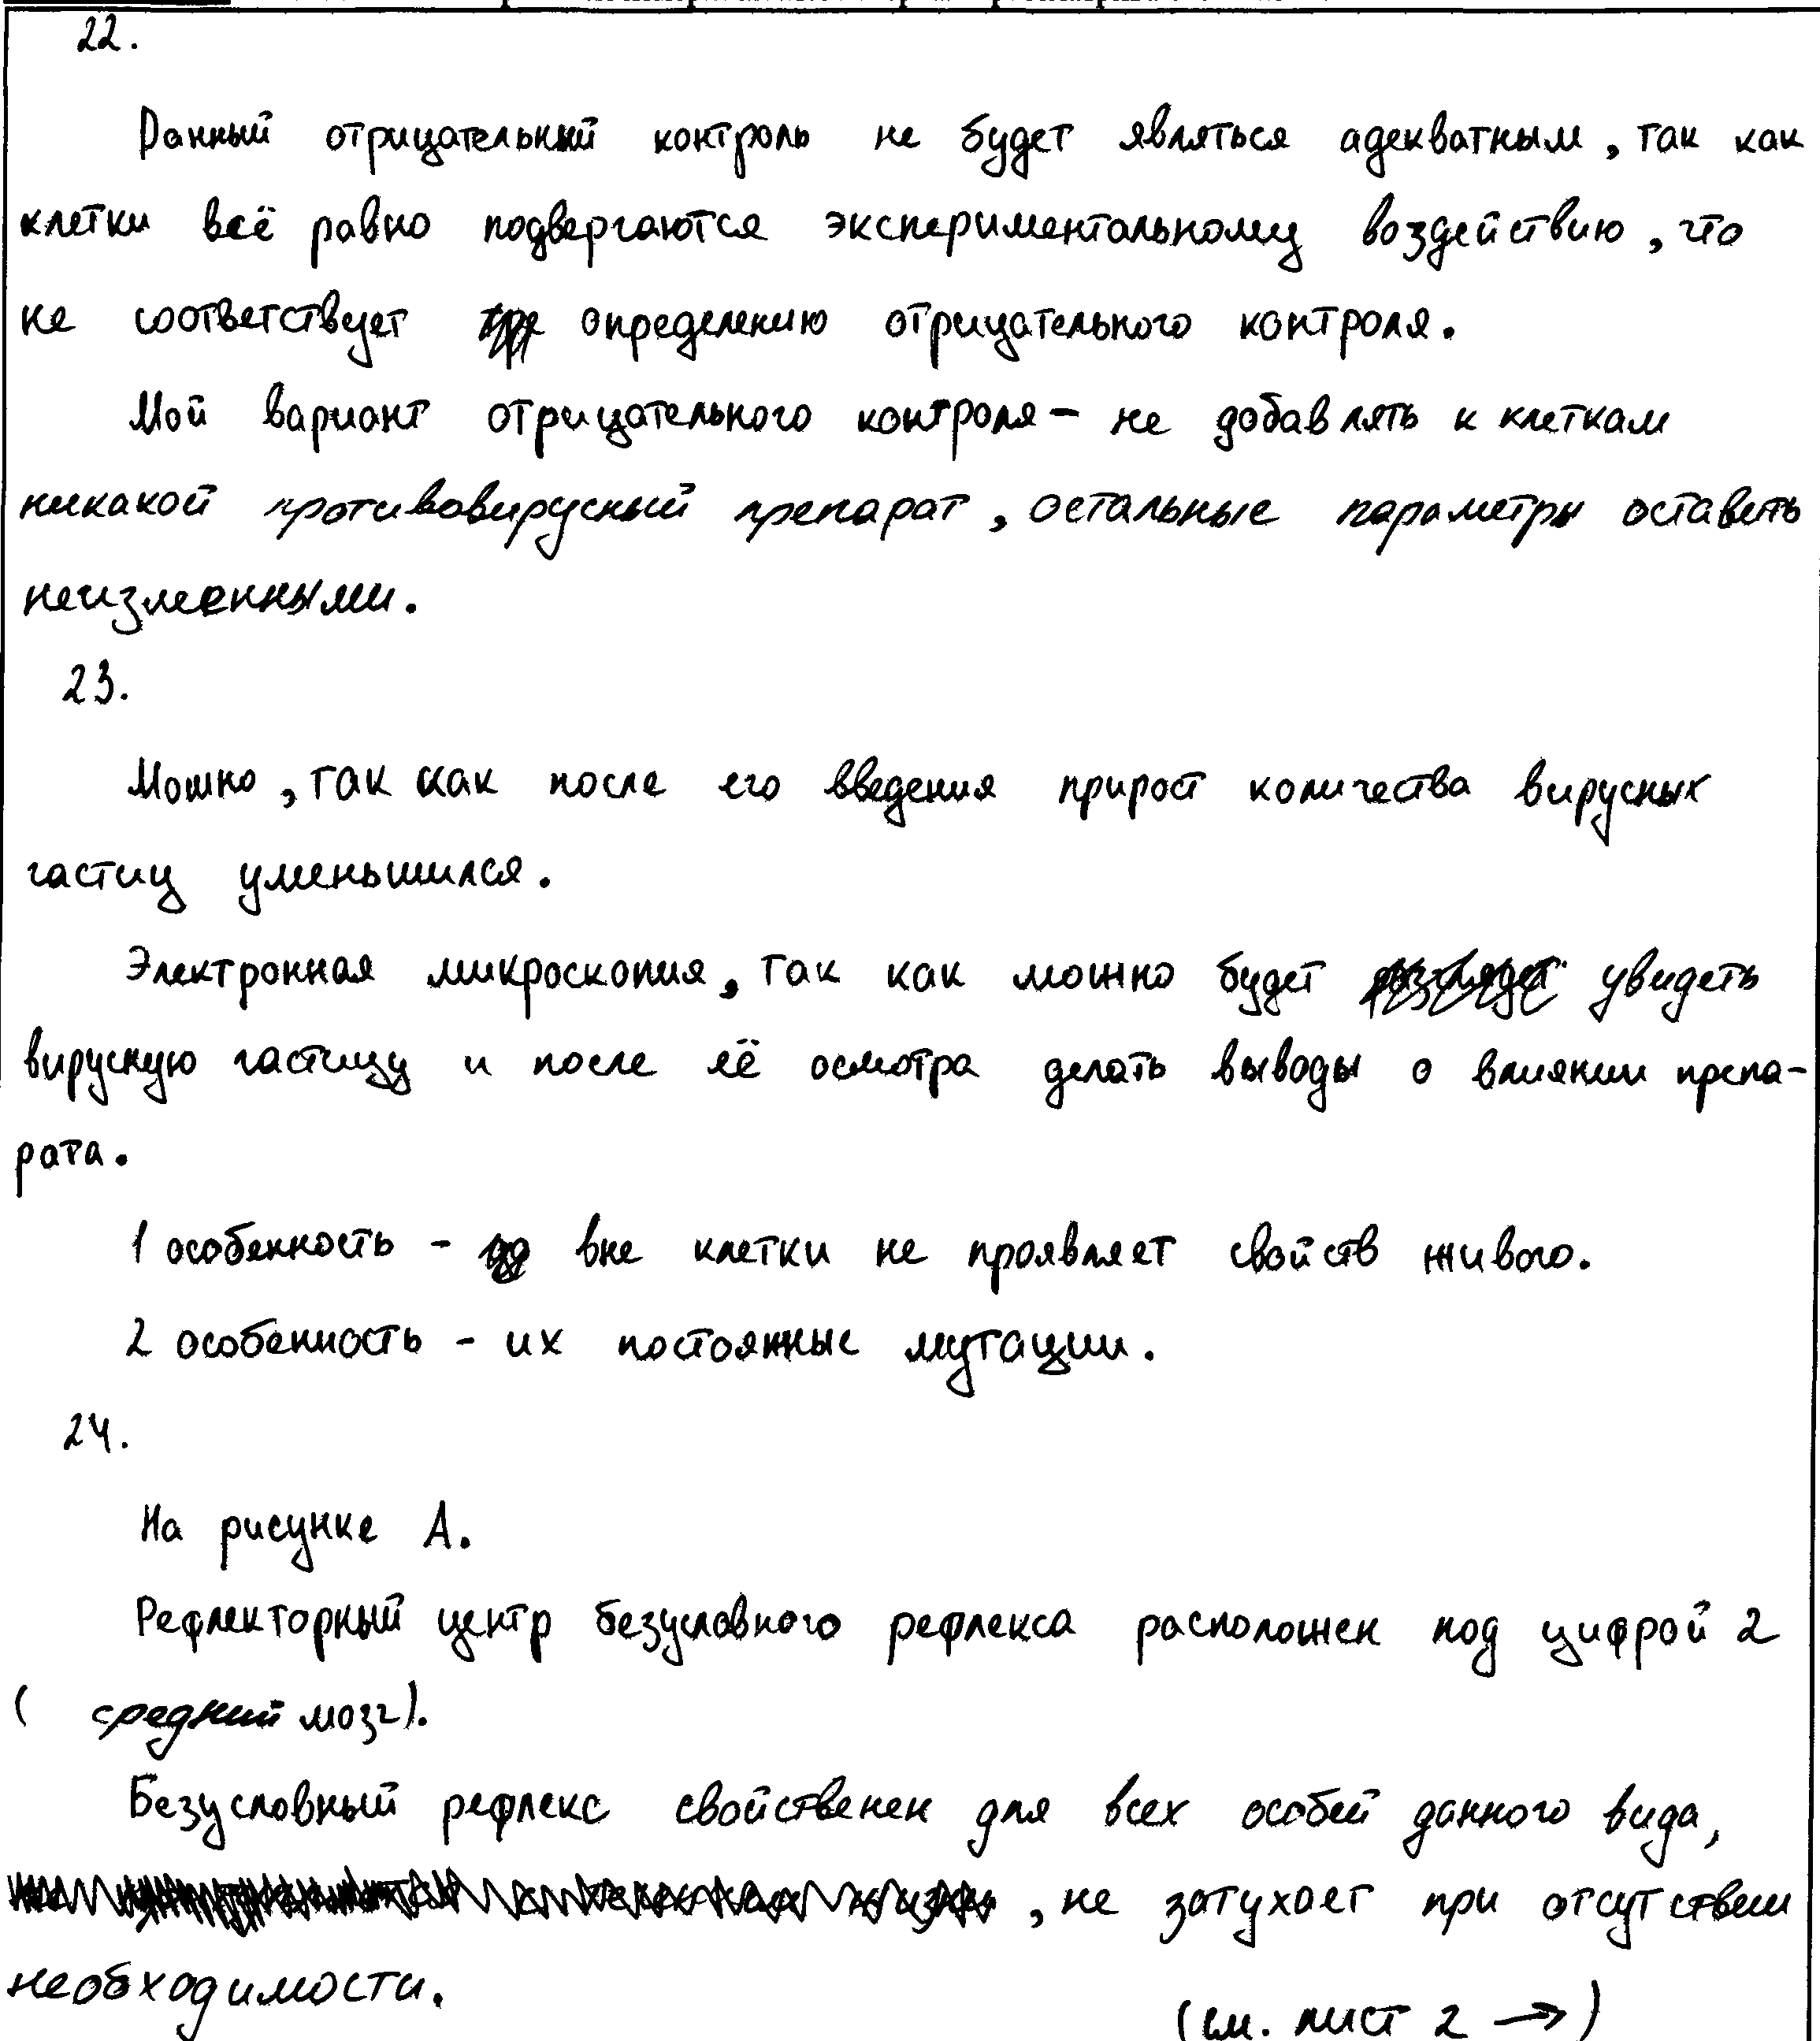 22.
Данный отрицательный контроль не будет являться адекватным, так как
клетки всё равно подвергаются экспериментальному воздействию, что
не соответствует определению отрицательного контроля.
Мой вариант отрицательного контроля - не добавлять к клеткам
никакой противовирусный препарат, остальные параметры оставить
неизменными.
23.
Можно, так как после его введения прирост количества вирусных
частиц уменьшился.
Электронная микроскопия, так как можно будет увидеть
вирусную частицу и после её осмотра делать выводы о влиянии препа-
рата.
1 особенность - вне клетки не проявляет свойств живого.
2 особенность - их постоянные мутации.
24.
На рисунке А.
Рефлекторный центр безусловного рефлекса расположен под цифрой 2
( средний мозг).
Безусловный рефлекс свойственен для всех особей данного вида,
, не затухает при отсутствии
необходимости.
(см. лист 2 →)